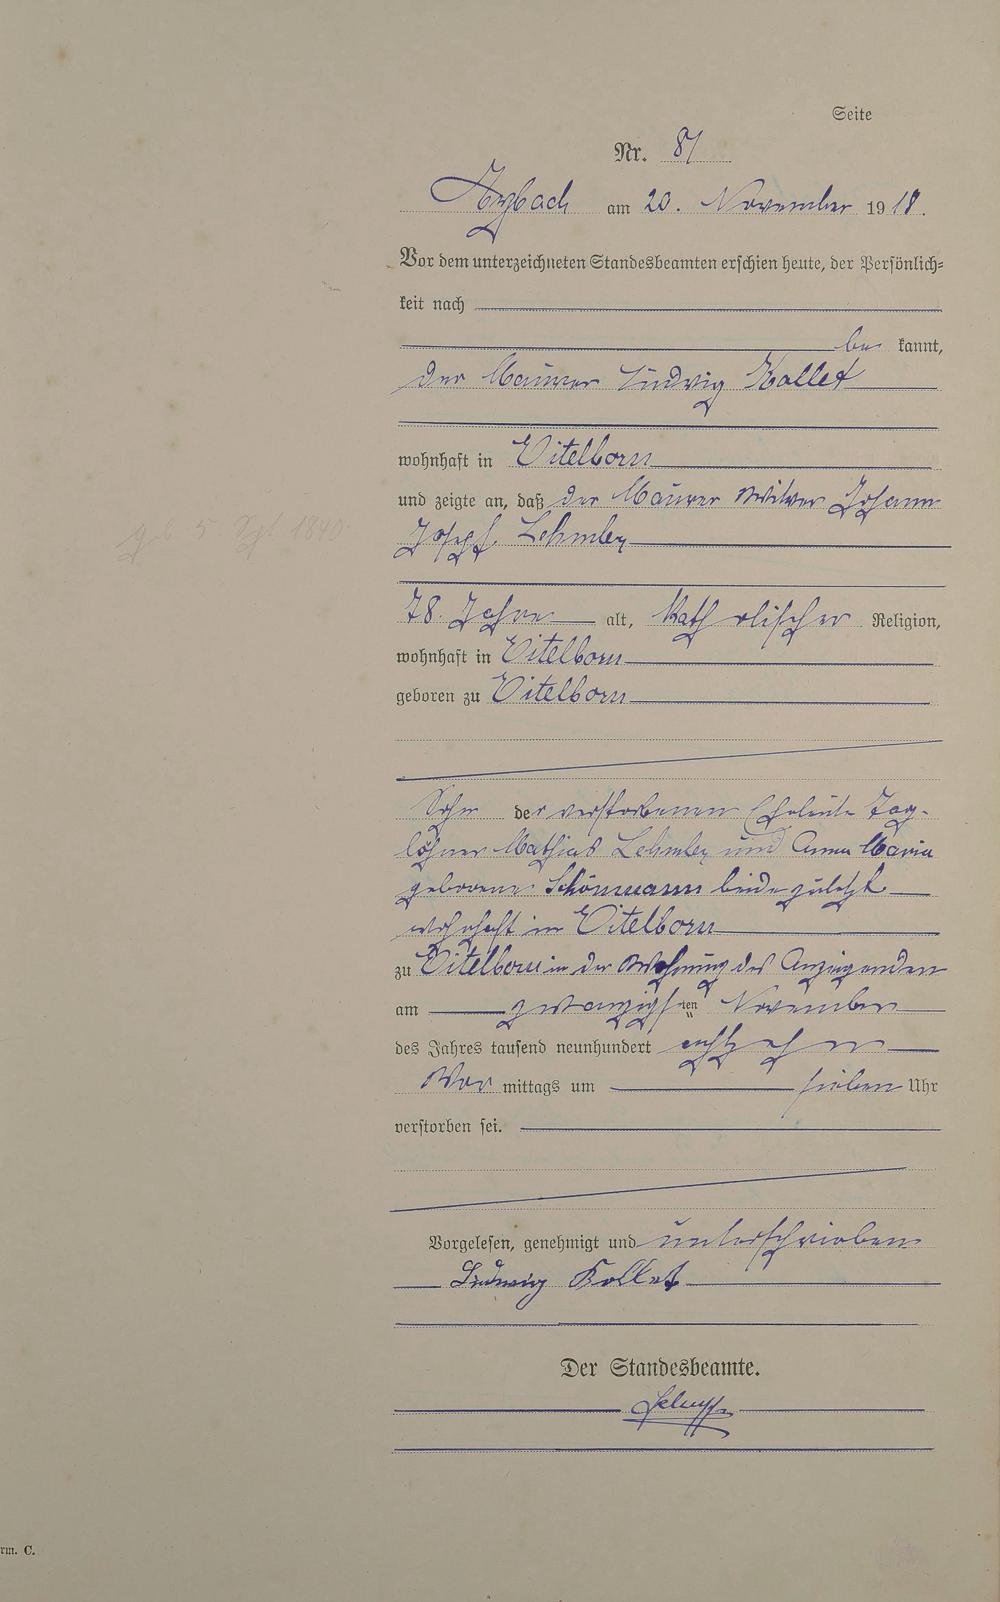 Seite
Nr. 81
Arzbach am 20. November 1918.
Vor dem unterzeichneten Standesbeamten erschien heute, der Persönlich=
keit nach
be kannt,
der Maurer Ludwig Kollet
wohnhaft in Eitelborn
und zeigte an, daß der Maurer Witwer Johann
Josef Lehmler
78 Jahre alt, katholischer Religion,
wohnhaft in Eitelborn
geb 5 Spt. 1840
geboren zu Eitelborn
Sohn der verstorbenen Eheleute Tag-
löhner Mathias Lehmler und Anna Maria
geborene Schönmann beide zuletzt
wohnhaft in Eitelborn
zu Eitelborn in der Wohnung des Anzeigenden
am zwanzigsten November
des Jahres tausend neunhundert achtzehn
Vor mittags um sieben Uhr
verstorben sei.
Vorgelesen, genehmigt und unterschrieben
Ludwig Kollet
Der Standesbeamte.
rm. C.